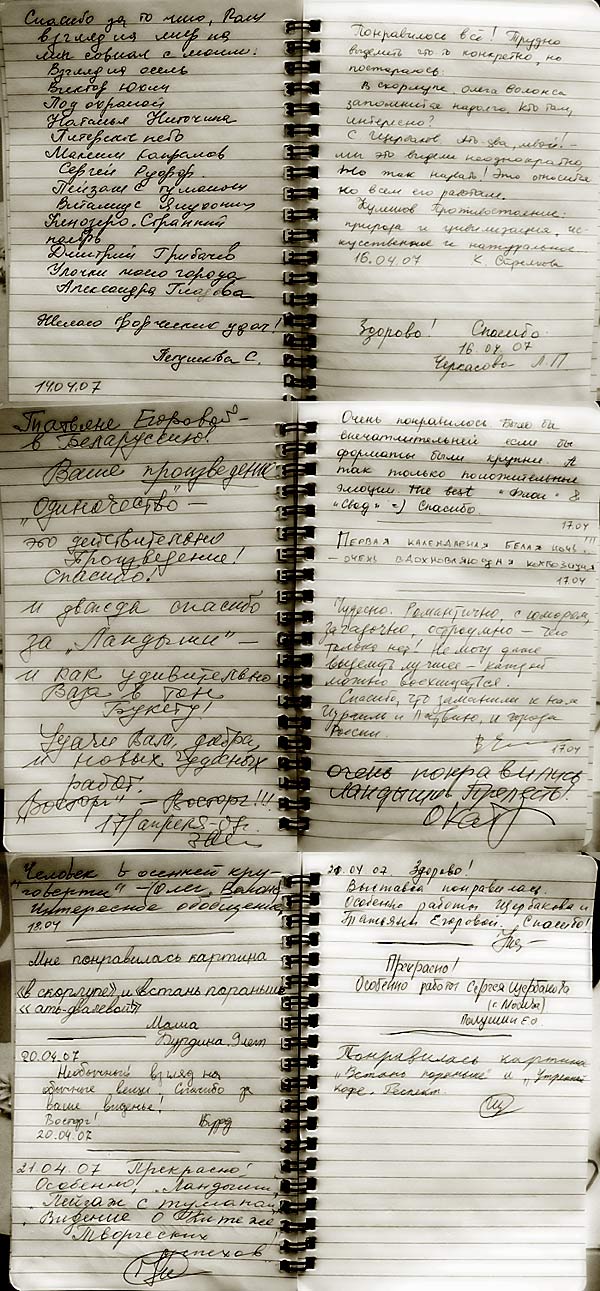 Спасибо за то что, Ваш
взгляд на мир на
мир совпал с моим:
Взгляд на осень
Виктор Юхлин
Под охраной
Наталья Ниточкина
Питерское небо
Максим
Сергей
Пейзаж с туманом
Виталиус
Кенозеро. Странный
Дмитрий Грибачёв
Улочки моего города
Александра
Желаю творческих удач!
С.
14.04.07
Понравилось всё! Трудно
выделить что-то конкретно, но
постараюсь:
В скорлупе. Олега Волокса
запомнится надолго. Кто там,
интересно?
С Щербаков. Ать-два, левой! –
мы это видели неоднократно,
но так назвать! Это относится
ко всем его работам.
Куликов Противостояние:
природа и цивилизация, ис-
кусственное и натуральное
16.04.07
Здорово! Спасибо.
16.04.07
Черкасова Л.П
Татьяне Егоровой –
в Беларуссию!
Ваше произведение
"Одиночество" –
это действительно
Произведение!
Спасибо!
и дважды спасибо
за "Ландыши" –
и как удивительно
Ваза в тон
Букету!
Удачи Вам, добра,
и новых чудесных
работ.
"Восторг" – Восторг!!!
17/апреля-07.
Очень понравилось. Было бы
впечатлительней если бы
форматы были крупней. А
так только положительные
эмоции. The best &
"Свод" =) Спасибо.
17.04
Первая календарная белая ночь!!!
– очень вдохновляющая композиция
17.04
Чудесно. Романтично, с юмором,
загадочно, остроумно – чего
только нет! Не могу даже
выделить лучшее – каждой
можно восхищаться.
Спасибо, что заманили к нам
Израиль и Латвию, и города
России.
17.04
очень понравились
Ландыши Прелесть!
Человек в осенней кру-
"говерти" – (Олег Волокс
Интересное обобщение
18.04
Мне понравилась картина
«в скорлупе» и встань пораньше
«ать-два левой»
Маша
Бурдина. 9 лет
20.04.07
Необычный взгляд на
обычные вещи! Спасибо за
ваше виденье!
Восторг!
20.04.07
21.04.07 Прекрасно!
Особенно, "Ландыши,
"Пейзаж с туманом",
"Видение о Китеже
Творческих
успехов!
21.04.07 Здорово!
Выставка понравилась.
Особенно работы Щербакова и
Татьяны Егоровой. Спасибо!
Прекрасно!
Особенно работы Сергея Щербакова
Понравилась картина
"Встань пораньше" и "Утреннее
кофе.